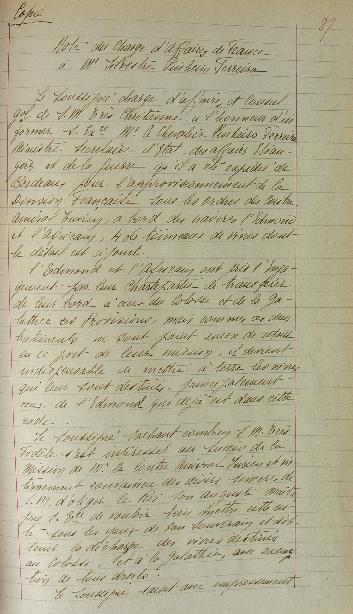 Copie
87
Note du Chargé d'affaires de France
à Mr Silvestre Pinheiro Ferreira
Le soussigné chargé d'affaires et Consul
gal de S. M. Très Chrétienne a l'honneur d'in
former S. Exce Mr le Chevalier Pinheiro Ferreira
Ministre Secrétaire d'Etat des affaires Etran
gères et de la guerre qu'il a été expédié de
Bordeaux pour l'approvisionnement de la
Division Française sous les ordres du Contre
amiral Jurien, à bord des navires l'Edmond
et l'Africain, de vivres dont
le détail est ci joint.
L'Edmond et l'Africain ont pris l'enga
gement par leur Charte partie de transférer
de leur bord à ceux du Colosse et de la Ga
lathée ces Provisions, mais comme ces deux
bâtiments ne sont point encore de retour
en ce port de leur mission, il devient
indispensable de mettre à terre les vivres
qui leur sont destinés, principalement
ceux de l'Edmond qui déjà est dans cette
rade.
Le soussigné sachant combien S. M. Très
Fidèle s'est intéressée au succès de la
Mission de Mr le Contre Amiral Jurien et in
timement convaincu des
S. M. d'obliger le Roi son auguste
prie S. Exce de vouloir bien mettre cette no
te sous les yeux de son Souverain et
la décharge des vivres destinés
au Colosse et à la Galathée, avec exemp
tion de tous droits.
Le soussigné saisit avec empressement